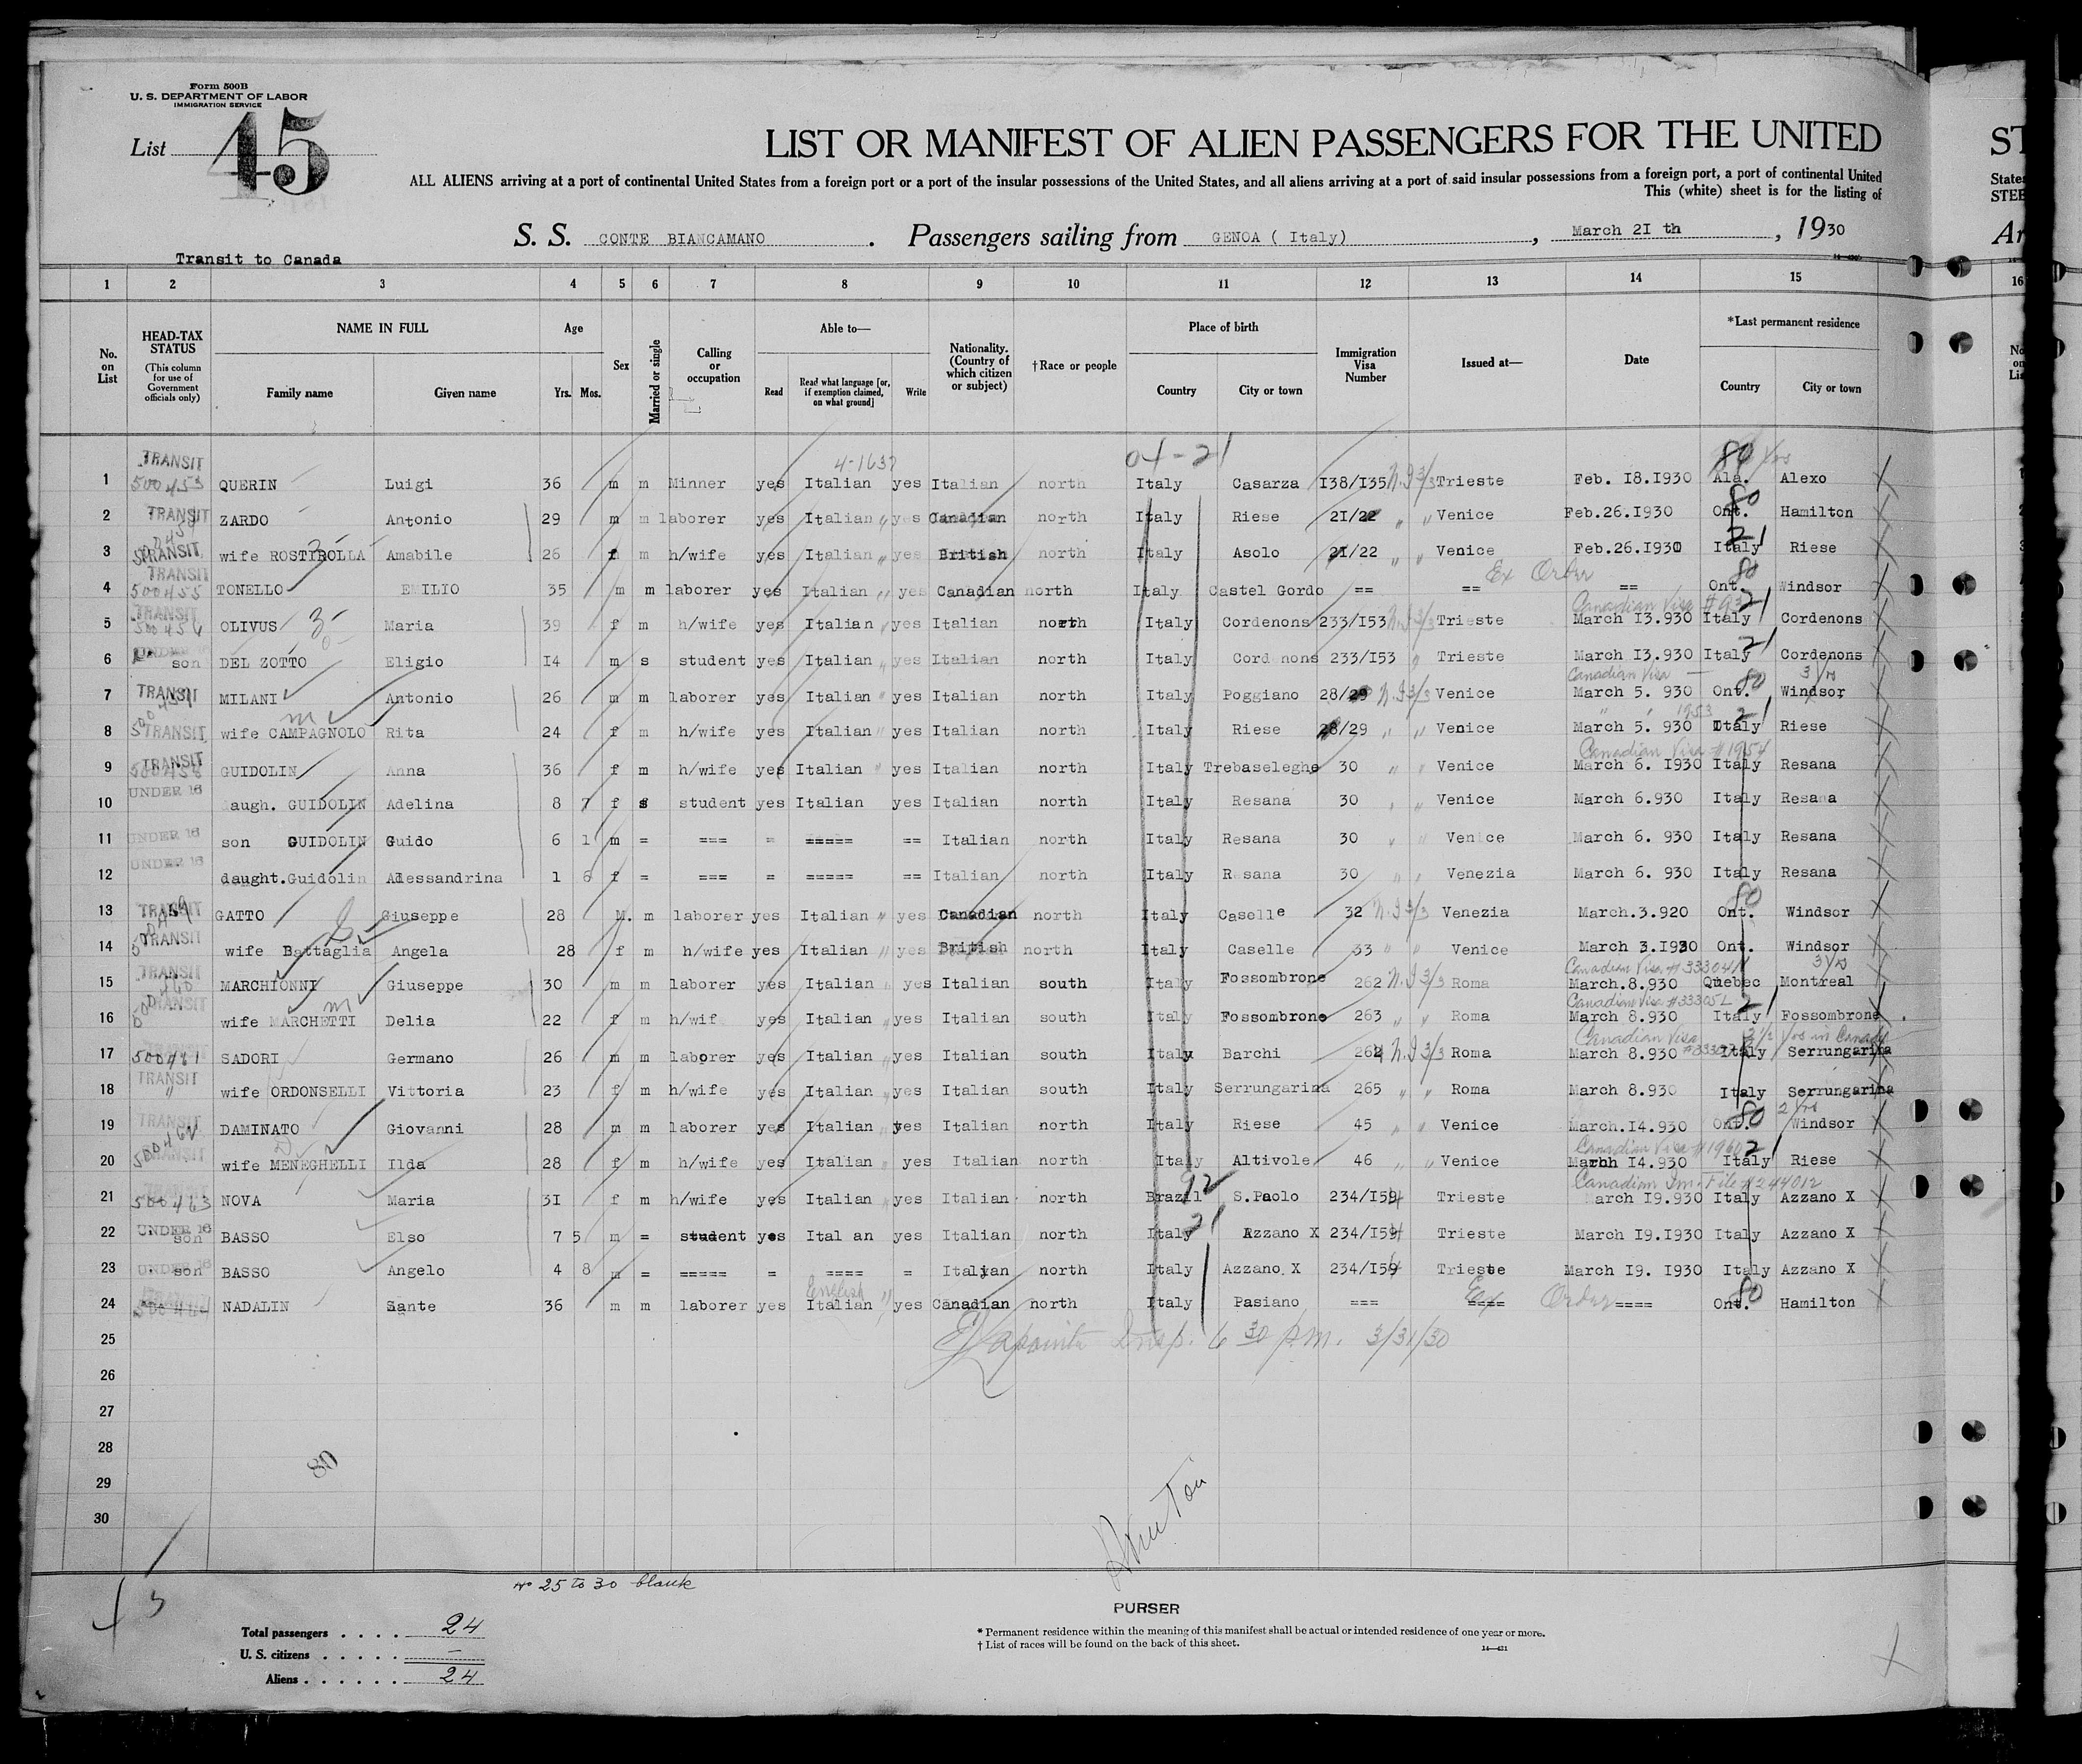 Form 500B
U. S. DEPARTMENT OF LABOR
IMMIGRATION SERVICE
List 45
LIST OR MANIFEST OF ALIEN PASSENGERS FOR THE UNITED
ST
ALL ALIENS arriving at a port of continental United States from a foreign port or a port of the insular possessions of the United States, and all aliens arriving at a port of said insular possessions from a foreign port, a port of continental United
States
This (white) sheet is for the listing of
STEE
S. S. CONTE BIANCAMANO . Passengers sailing from GENOA ( Italy) , March 2I th , 1930
Ar
Transit to Canada
1 2 3 4 5 6 7 8 9 10 11 12 13 14 15 16
No. on List
HEAD-TAX STATUS (This column for use of Government officials only)
NAME IN FULL Family name Given name
Age Yrs. Mos.
Sex
Married or single
Calling or occupation
Able to— Read Read what language [or, if exemption claimed, on what ground] Write
Nationality. (Country of which citizen or subject)
†Race or people
Place of birth Country City or town
Immigration Visa Number
Issued at—
Date
*Last permanent residence Country City or town
4-1637 04-21 80
1 TRANSIT 500453 QUERIN Luigi 36 m m Minner yes Italian yes Italian north Italy Casarza I38/I35 Trieste Feb. I8.I930 Ala. Alexo
2 TRANSIT ZARDO Antonio 29 m m laborer yes Italian yes Canadian north Italy Riese 2I/22 Venice Feb.26.I930 Ont. 80 Hamilton
3 TRANSIT wife ROSTIROLLA Amabile 26 f m h/wife yes Italian yes British north Italy Asolo 2I/22 Venice Feb.26.I930 Italy 21 Riese
4 TRANSIT 500455 TONELLO EMILIO 35 m m laborer yes Italian yes Canadian north Italy Castel Gordo == == Ex Order == Ont. 80 Windsor
5 TRANSIT 500456 OLIVUS Maria 39 f m h/wife yes Italian yes Italian north Italy Cordenons 233/I53 Trieste Canadian Visa March I3.930 Italy 21 Cordenons
6 UNDER 16 son DEL ZOTTO Eligio I4 m s student yes Italian yes Italian north Italy Cordenons 233/I53 Trieste March I3.930 Italy 21 Cordenons
7 TRANSIT MILANI Antonio 26 m m laborer yes Italian yes Italian north Italy Poggiano 28/29 Venice Canadian Visa March 5. 930 Ont. 80 Windsor
8 TRANSIT wife CAMPAGNOLO Rita 24 f m h/wife yes Italian yes Italian north Italy Riese 28/29 Venice 1953 March 5. 930 Italy 21 Riese
9 TRANSIT 500458 GUIDOLIN Anna 36 f m h/wife yes Italian yes Italian north Italy Trebaseleghe 30 Venice Canadian Visa #1954 March 6. I930 Italy Resana
10 UNDER 16 daugh. GUIDOLIN Adelina 8 7 f s student yes Italian yes Italian north Italy Resana 30 Venice March 6.930 Italy Resana
11 UNDER 16 son GUIDOLIN Guido 6 1 m = === = ===== == Italian north Italy Resana 30 Venice March 6. 930 Italy Resana
12 UNDER 16 daught.Guidolin Alessandrina 1 6 f = === = ===== == Italian north Italy Resana 30 Venezia March 6. 930 Italy Resana
13 TRANSIT GATTO Giuseppe 28 M. m laborer yes Italian yes Canadian north Italy Caselle 32 Venezia March.3.920 Ont. 80 Windsor
14 TRANSIT wife Battaglia Angela 28 f m h/wife yes Italian yes British north Italy Caselle 33 Venice March 3.I930 Ont. Windsor
15 TRANSIT MARCHIONNI Giuseppe 30 m m laborer yes Italian yes Italian south Italy Fossombrone 262 Roma Canadian Visa March.8.930 Quebec Montreal
16 TRANSIT wife MARCHETTI Delia 22 f m h/wif yes Italian yes Italian south Italy Fossombrone 263 Roma Canadian Visa March 8.930 Italy 21 Fossombrone
17 500461 SADORI Germano 26 m m laborer yes Italian yes Italian south Italy Barchi 264 Roma Canadian Visa March 8.930 Italy Serrungarina
18 TRANSIT wife ORDONSELLI Vittoria 23 f m h/wife yes Italian yes Italian south Italy Serrungarina 265 Roma March 8.930 Italy Serrungarina
19 TRANSIT DAMINATO Giovanni 28 m m laborer yes Italian yes Italian north Italy Riese 45 Venice March.I4.930 Ont. 80 2 yrs Windsor
20 500462 wife MENEGHELLI Ilda 28 f m h/wife yes Italian yes Italian north Italy Altivole 46 Venice Canadian Visa #1960 March I4.930 Italy 21 Riese
21 500463 NOVA Maria 3I f m h/wife yes Italian yes Italian north Brazil 92 S.Paolo 234/I54 Trieste Canadian Im. File #244012 March I9.930 Italy Azzano X
22 UNDER 16 son BASSO Elso 7 5 m = student yes Ital an yes Italian north Italy 21 Azzano X 234/I54 Trieste March I9.I930 Italy Azzano X
23 UNDER 16 son BASSO Angelo 4 8 m = ===== = ==== = Italian north Italy Azzano X 234/I54 Trieste March I9. I930 Italy Azzano X
24 500464 NADALIN Sante 36 m m laborer yes English Italian yes Canadian north Italy Pasiano === ==== Ex Order ==== Ont. 80 Hamilton
25 Insp. 6 30 P.M. 3/31/30
26
27
28
29
30
80
No 25 to 30 blank
PURSER
Total passengers . . . . 24
U. S. citizens . . . . . —
Aliens . . . . . . 24
* Permanent residence within the meaning of this manifest shall be actual or intended residence of one year or more.
† List of races will be found on the back of this sheet.
14—421